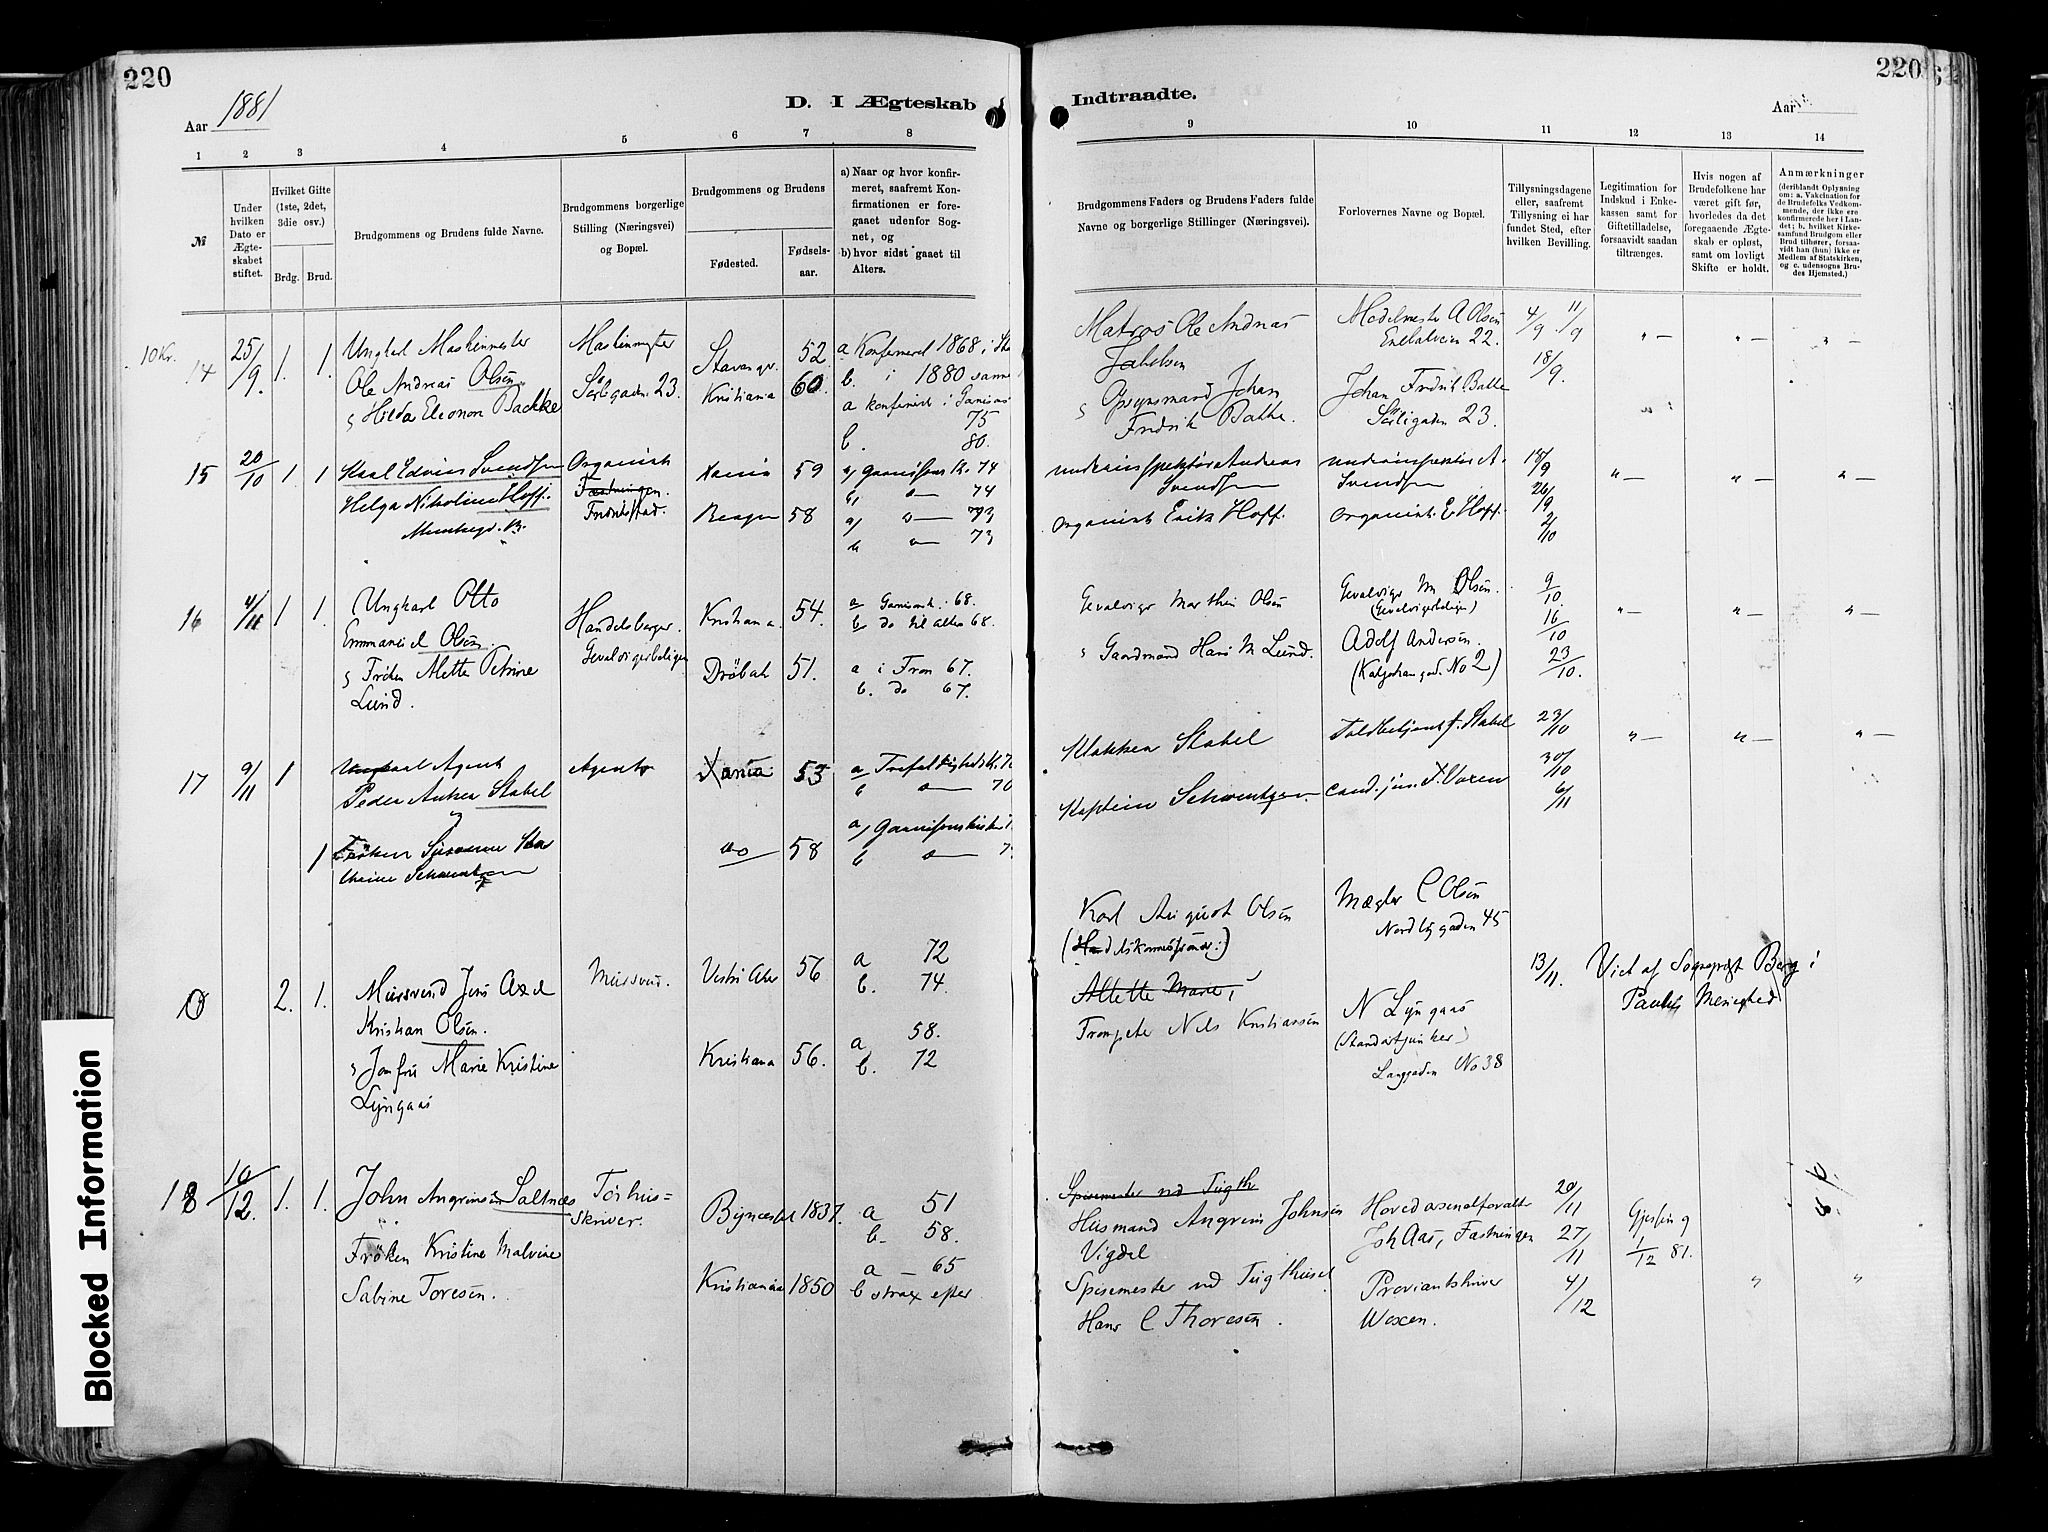 220
Aar 1881
D. I Ægteskab
1 2 3 4 5 6 7 8
№
Under hvilken Dato er Ægteskabet stiftet.
Hvilket Gifte (1ste, 2det, 3die osv.)
Brdg. Brud.
Brudgommens og Brudens fulde Navne.
Brudgommens borgerlige Stilling (Næringsvei) og Bopæl.
Brudgommens og Brudens
Fødested. Fødselsaar.
a) Naar og hvor konfirmeret, saafremt Konfirmationen er foregaaet udenfor Sognet, og
b) hvor sidst gaaet til Alters.
10 Kr.
14 25/9. 1. 1.
Ungkarl Maskinmester
Ole Andreas Olsen
Hilda Eleonora Backke
23.
Stavanger 52
Kristiania 60
a Konfirmeret 1868 i
b. i 1880 samme
a konfirmeret i Garnisons
75
b. 80.
15 20/10 1. 1
Karl Edvin Svendsen
Helga Nikoline Hoff.
Organist
Fæstningen.
Fredrikstad.
Xania 59
Bergen 58
a) Garnisons K. 74
b) 74
a) 73
b 73
16 4/11 1 1.
Ungkarl Otto
Emmanuel Olsen.
Frøken Alette Petrine
Lund.
Handelsborger.
Gevaldigerboligen
Kristiania 54.
Drøbak 51.
a Garnisonsk. 68.
b do til alters 68.
a i Fron 67.
b. do 67.
17 9/11 1
Ungkarl Agent
Peder Anker Stabel
Agent
Xania 53
a Trefoldighedsk. 70
b 70
1 Frøken
do 58
a) Garnisonskirken
b
0 2. 1.
Mursvend Jens Axel
Kristian Olsen.
Jomfru Marie Kristine
Lyngaas
Mursvend.
Vestri Aker 56
Kristiania 56.
a 72
b. 74.
a 58.
b. 72
18 10/12. 1. 1.
John Angrimsen Saltnes
Frøken Kristine Malvine
Sabine Toresen.
Tøihusskriver.
Bynæsset 1837.
Kristiania 1850
a 51
b. 58.
a 65
b strax efter
220
Indtraadte.
Aar
9 10 11 12 13 14
Brudgommens Faders og Brudens Faders fulde Navne og borgerlige Stillinger (Næringsvei).
Forlovernes Navne og Bopæl.
Tillysningsdagene eller, saafremt Tillysning ei har fundet Sted, efter hvilken Bevilling.
Legitimation for Indskud i Enkekassen samt for Giftetilladelse, forsaavidt saadan tiltrænges.
Hvis nogen af Brudefolkene har været gift før, hvorledes da det foregaaende Ægteskab er opløst, samt om lovligt Skifte er holdt.
Anmærkninger
(deriblandt Oplysning om: a. Vakcination for de Brudefolks Vedkommende, der ikke ere konfirmerede her i Landet; b. hvilket Kirkesamfund Brudgom eller Brud tilhører, forsaavidt han (hun) ikke er Medlem af Statskirken, og c. udensogns Brudes Hjemsted.)
Matros Ole Andreas
Jakobsen
Opsynsmand Johan
Fredrik Bakke.
A Olsen
22.
Johan Fredrik Bakke
23.
4/9 11/9
18/9.
Underinspektør Andreas
Svendsen
Organist Erik Hoff.
Underinspektør A.
Svendsen
Organist. E. Hoff.
18/9
26/9
2/10
Gevaldiger Marthin Olsen
Gaardmand Hans M Lund.
Gevaldiger M Olsen.
(Gevaldigerboligen)
Adolf Andersen.
(Karljohansgad. No 2)
9/10.
16/10
23/10.
Klokker Stabel
Kaptein
Toldbetjent J. Stabel
Cand. jur.
23/10
30/10
6/11
Karl August Olsen
Alette Marie,
Trompeter Nils Kristiansen
Mægler C Olsen
45
N Lyngaas
(Standartjunker)
Langgaden No 38
13/11.
Viet af Sogneprest Berg i
Paulus Menighed
Spisemester ved Tugth
Husmand Angrim Johnsen
Vigdel
Spisemester ved Tugthuset
Hans C Thoresen.
Hovedarsenalforvalter
Joh Aas, Fæstningen
Proviantskriver
Woxen.
20/11
27/11
4/12
1/12 81.
Blocked Information